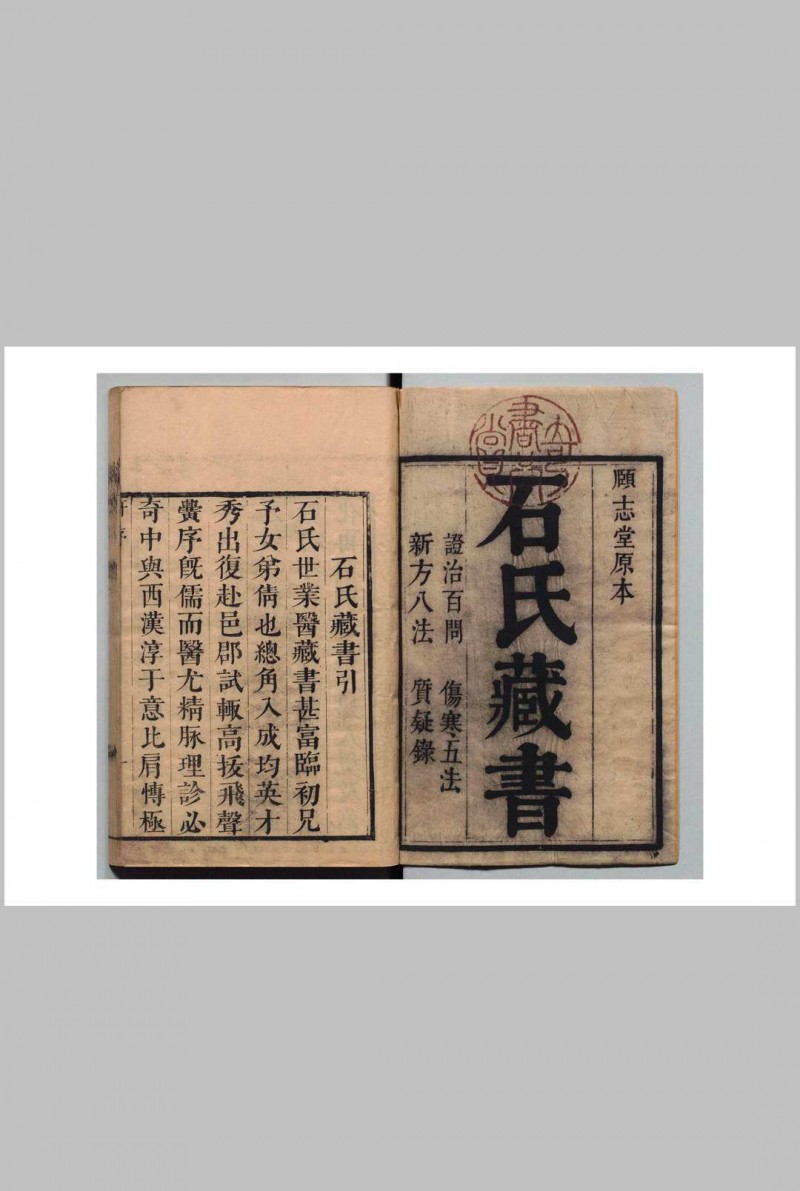 願志堂原本
石氏藏書
證治百問　傷寒五法
新方八法　質疑錄
石氏藏書引
石氏世業醫藏書甚富臨初兄
予女弟倩也總角入成均英才
秀出復赴邑郡試輒高拔飛聲
黌序旣儒而醫尤精脉理診必
奇中與西漢淳于意比肩慱極